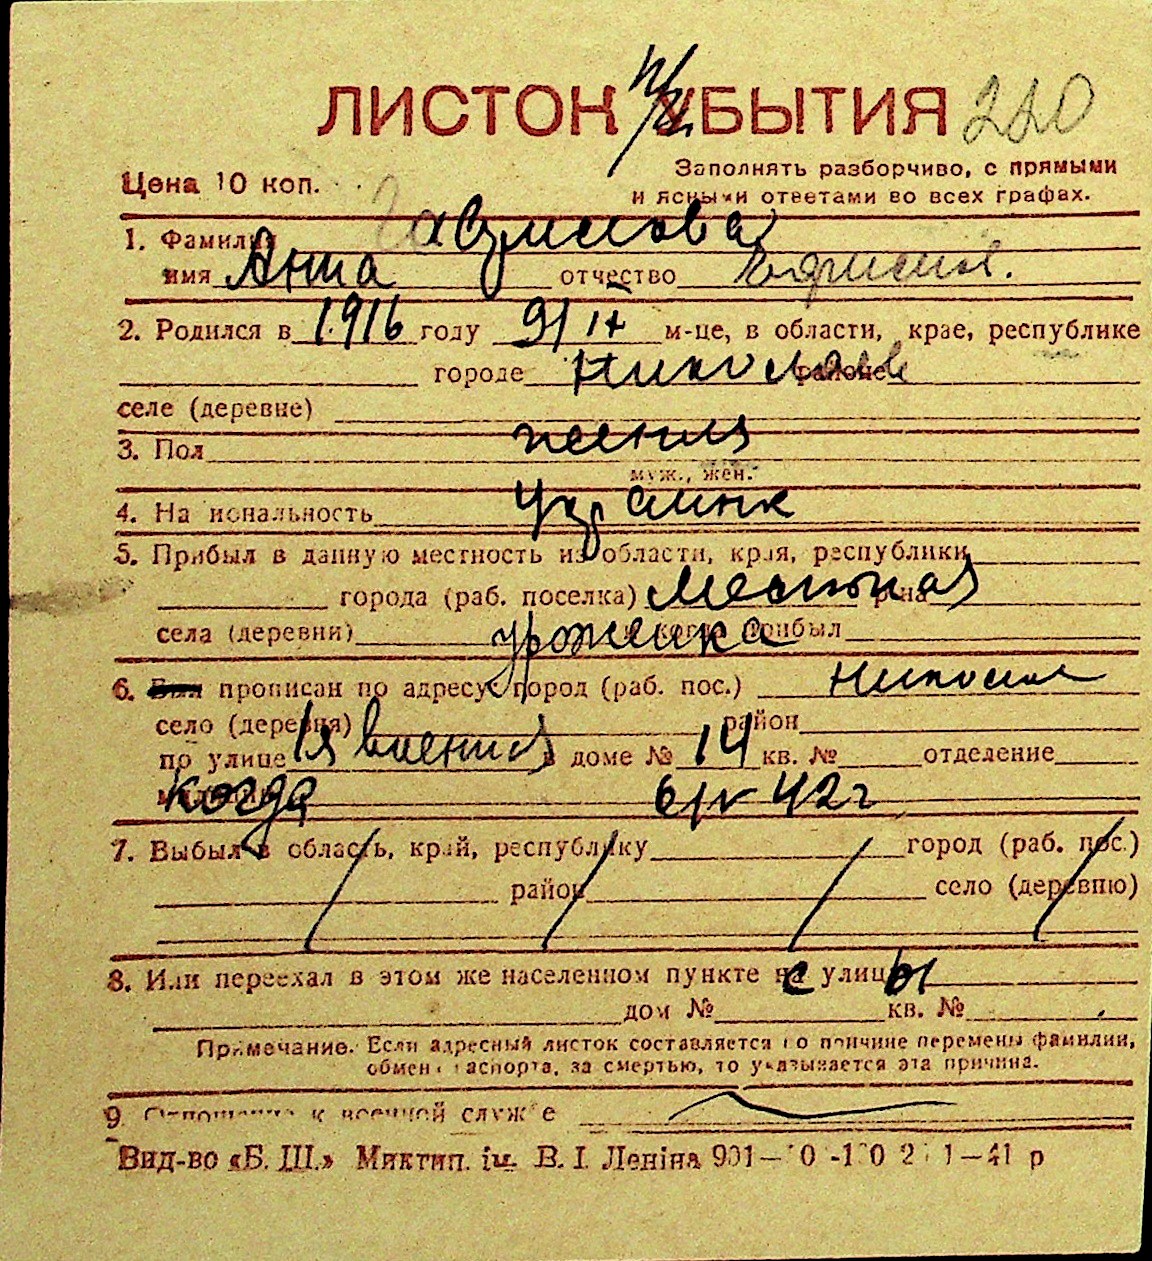 ЛИСТОК УБЫТИЯ 220
Заполнять разборчиво, с прямыми
Цена 10 коп. и ясными ответами во всех графах.
1. Фамилия
имя Анна отчество
2. Родился в 1916 году 9/IX м-це, в области, крае, республике
городе Николаев районе
селе (деревне)
3. Пол женщ
муж., жен.
4. Национальность Украинк
5. Прибыл в данную местность из области, края, республики
города (раб. поселка) Местная р-на
села (деревни) уроженка и когда прибыл
6. Был прописан по адресу: город (раб. пос.) Николаев
село (деревня) район
по улице 1я военная в доме № 14 кв. № отделение
когда 6/IV 42 г
7. Выбыл в область, край, республику город (раб. пос.)
район село (деревню)
8. Или переехал в этом же населенном пункте с улицы
дом № кв. №
Примечание. Если адресный листок составляется по причине перемены фамилии,
обмена паспорта, за смертью, то указывается эта причина.
9. Отношение к военной службе
Вид-во «Б. Ш.» Миктип. ім. В. І. Леніна